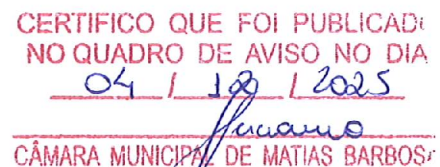 CERTIFICO QUE FOI PUBLICAD
NO QUADRO DE AVISO NO DIA
04 / / 2025
CÂMARA MUNICIPAL DE MATIAS BARBOS